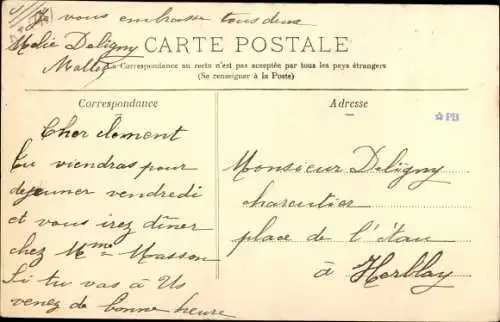 Je vous embrasse tous deux
Marie Deligny
CARTE POSTALE
La Correspondance au recto n'est pas acceptée par tous les pays étrangers
(Se renseigner à la Poste)
Correspondance
Adresse
☆PB
Cher clement
Tu viendras pour
dejeuner vendredi
et vous irez dîner
chez Mme Masson
Si tu vas à Us
venez de bonne heure
Monsieur Deligny
charcutier
place de l'étau
à Herblay